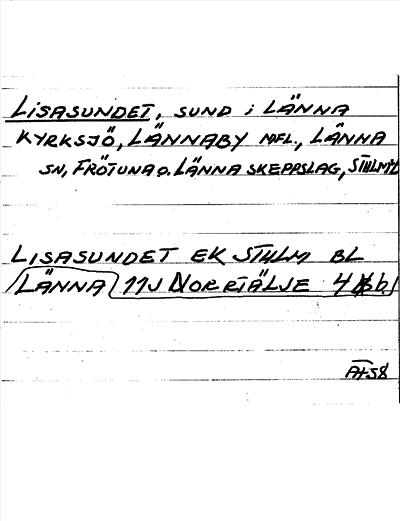 LISASUNDET, SUND i LÄNNA
KYRKSJÖ, LÄNNABY MFL., LÄNNA
SN, FRÖTUNA O. LÄNNA SKEPPSLAG, STHLM
LISASUNDET EK STHLM BL
LÄNNA 11J NORRTÄLJE 4